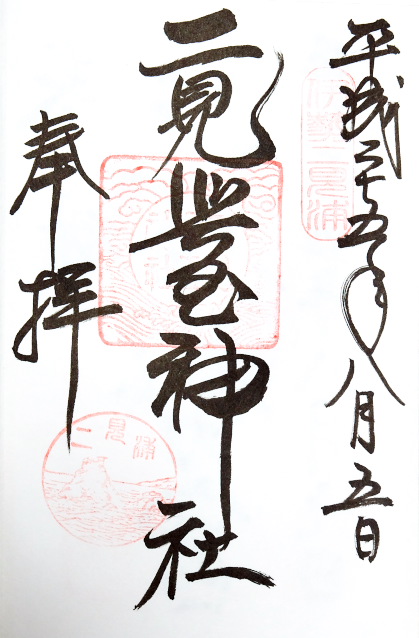 平成二十五年八月五日
伊勢二見浦
二見興玉神社
奉拝
二見浦